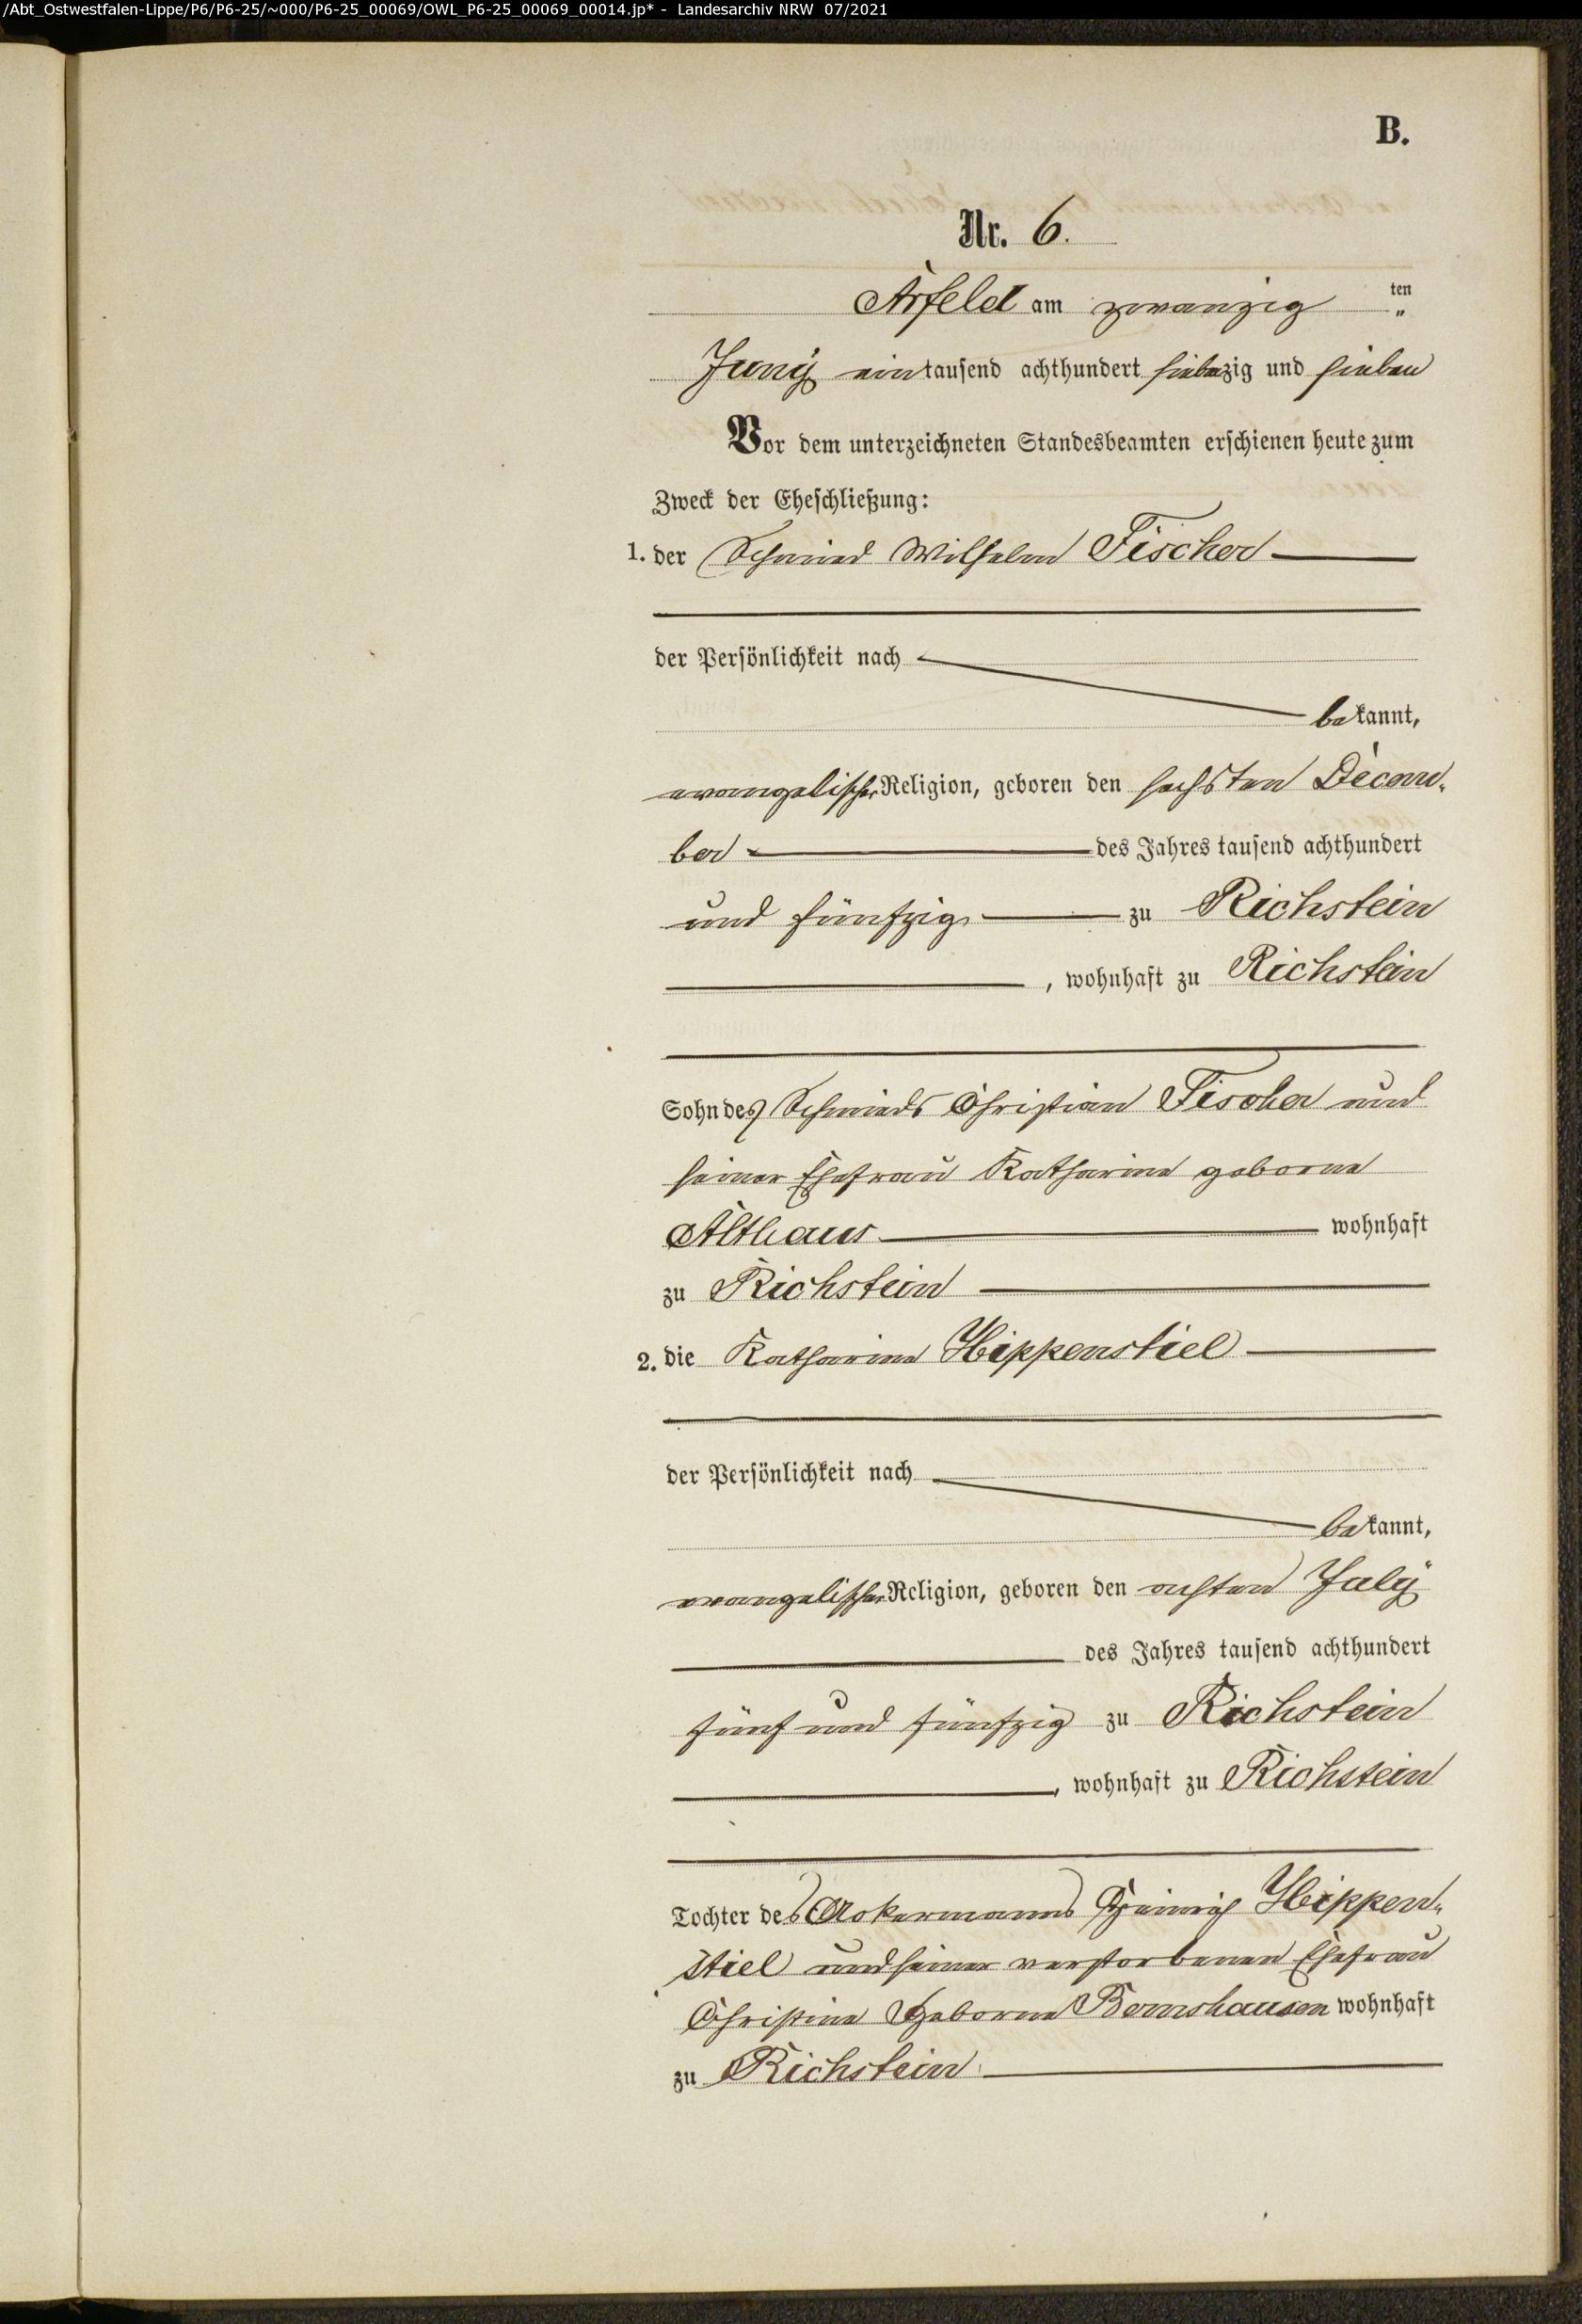 /Abt_Ostwestfalen-Lippe/P6/P6-25/~000/P6-25_00069/OWL_P6-25_00069_00014.jp* - Landesarchiv NRW 07/2021
B.
Nr. 6.
Arfeld am zwanzig ten
"
Juny ein tausend achthundert siebenzig und sieben
Vor dem unterzeichneten Standesbeamten erschienen heute zum
Zweck der Eheschließung:
1. der Schmied Wilhelm Fischer
der Persönlichkeit nach
bekannt,
evangelischer Religion, geboren den sechsten Decem-
ber des Jahres tausend achthundert
und fünfzig zu Richstein
, wohnhaft zu Richstein
Sohn des Schmieds Christian Fischer und
seiner Ehefrau Katharine geborne
Althaus wohnhaft
zu Richstein
2. die Katharine Hippenstiel
der Persönlichkeit nach
bekannt,
evangelischer Religion, geboren den achten July
des Jahres tausend achthundert
fünf und fünfzig zu Richstein
, wohnhaft zu Richstein
Tochter des Ackermanns Heinrich Hippen-
stiel und seiner verstorbenen Ehefrau
Christine Geborne Bernshausen wohnhaft
zu Richstein